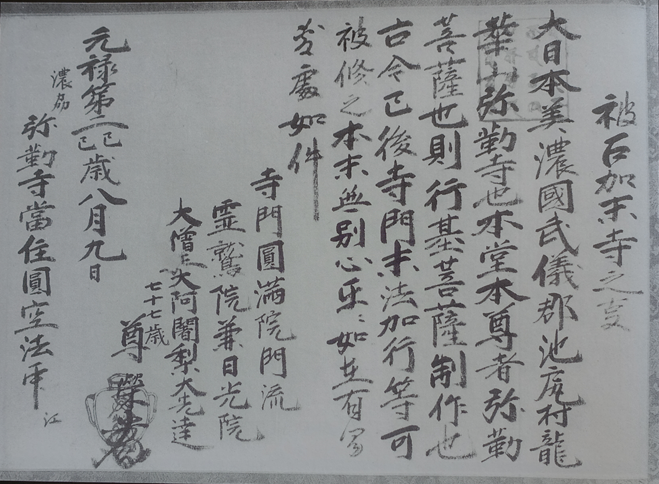 被召加末寺之支
大日本美濃國武儀郡池尻村龍
華山弥勒寺也本堂本尊者弥勒
菩薩也則行基菩薩制作也
古今已後寺門末法加行等可
被修之本末無別心
如件
寺門圓滿院門流
靈鷲院兼日光院
大僧正大阿闍梨大先達
七十七歳
尊榮
元禄第二己巳歳八月九日
濃刕
弥勒寺當住圓空法
江